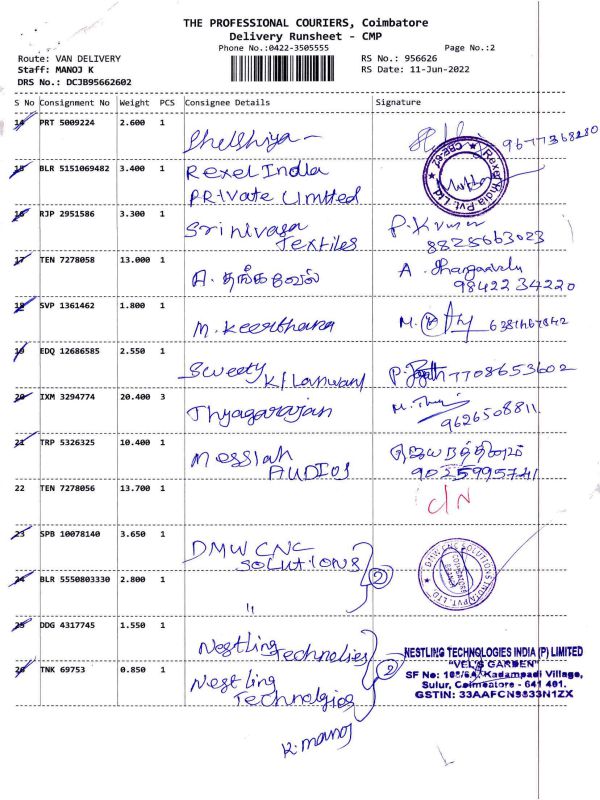 THE PROFESSIONAL COURIERS, Coimbatore
Delivery Runsheet - CMP
Phone No.:0422-3505555
Page No.:2
Route: VAN DELIVERY
RS No.: 956626
Staff: MANOJ K
RS Date: 11-Jun-2022
DRS No.: DCJB95662602
S No Consignment No Weight PCS Consignee Details Signature
14 PRT 5009224 2.600 1
Shelshiya 9677368280
15 BLR 5151069482 3.400 1 Rexel India
Private Limited
Rexel India Pvt. Ltd. CBE-62
16 RJP 2951586 3.300 1 Srinivasa P. Kumar
Textiles 8825663023
17 TEN 7278058 13.000 1
A. தங்கவேல் A. Thangavelu
9842234220
18 SVP 1361462 1.800 1
M. Keerthana M.
19 EDQ 12686585 2.550 1
Sweety 7708653602
20 IXM 3294774 20.400 3
Thyagarajan M.
9626508811
21 TRP 5326325 10.400 1
Messiah
AUDIOS 9025995741
22 TEN 7278056 13.700 1
C/N
23 SPB 10078140 3.650 1
DMW CNC
SOLUTIONS
2
DMW CNC SOLUTIONS PVT. LTD.
24 BLR 5550803330 2.800 1
"
25 DDG 4317745 1.550 1
Nestling
Technolies
2
26 TNK 69753 0.850 1
Nestling
Technolgies
NESTLING TECHNOLOGIES INDIA (P) LIMITED
"VEL'S GARDEN"
Kadampadi Village,
Sulur, Coimbatore - 641 401.
GSTIN: 33AAFCN9833N1ZX
K. Manoj